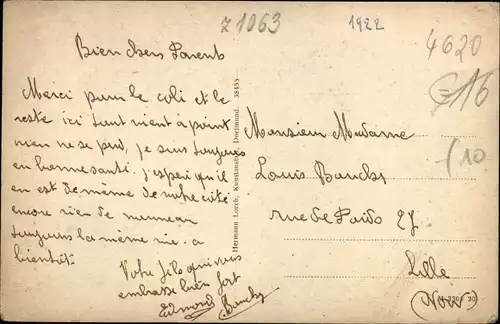 z 1063
1922
4620
16
10
Bien chers Parents
Merci pour le coli et le
reste ici tout vient à point
rien ne se perd, je suis toujours
en bonne santé j'espère qu'il
en est de même de votre côté
encore rien de nouveau
toujours la même vie. a
bientôt.
Votre fils qui vous
embrasse bien fort
Edmond
Hermann Lorch, Kunstanstalt, Dortmund. 38455
Monsieur Madame
Louis
rue de Paris 27
Lille
(Nord)